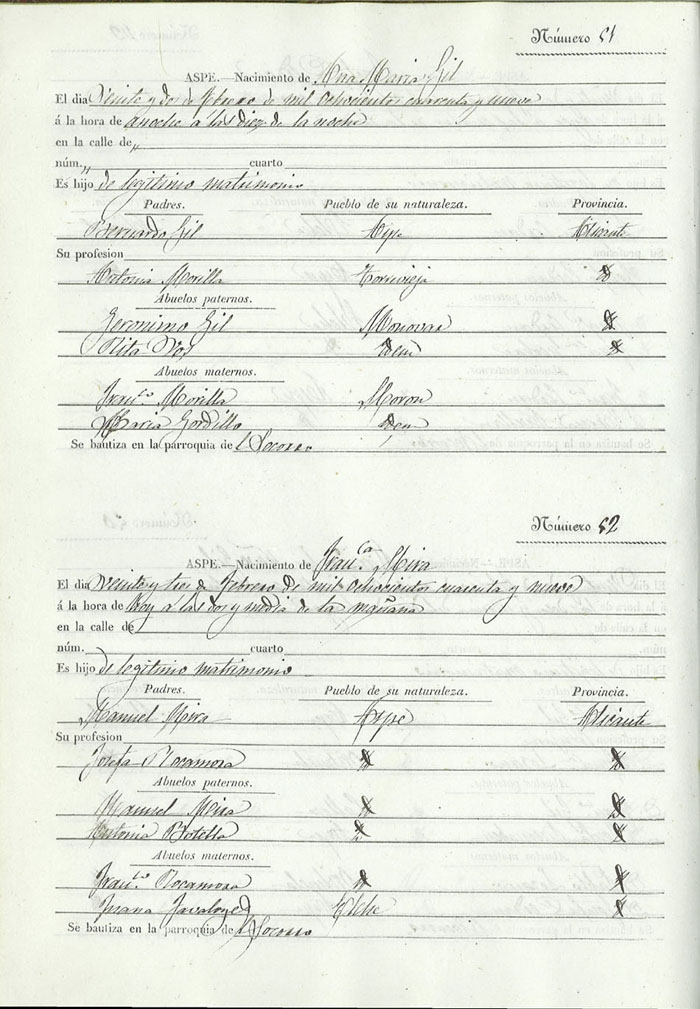 Número 51
ASPE.—Nacimiento de Ana Maria Gil
El dia Veinte y dos de febrero de mil ochocientos cuarenta y nueve
á la hora de anoche a las diez de la noche
en la calle de "
núm. " cuarto
Es hijo de legitimo matrimonio
Padres. Pueblo de su naturaleza. Provincia.
Bernardo Gil Aspe Alicante
Su profesion
Antonia Morilla Torrevieja
Abuelos paternos.
Geronimo Gil Monovar
Rita Idem
Abuelos maternos.
Franco. Morilla Moron
Maria Gordillo Idem
Se bautiza en la parroquia del Socorro
Número 52
ASPE.—Nacimiento de Franca. Mira
El dia Veinte y tres de febrero de mil ochocientos cuarenta y nueve
á la hora de Hoy a las dos y media de la mañana
en la calle de
núm. cuarto
Es hijo de legitimo matrimonio
Padres. Pueblo de su naturaleza. Provincia.
Manuel Mira Aspe Alicante
Su profesion
Josefa Rocamora
Abuelos paternos.
Manuel Mira
Antonia Botella
Abuelos maternos.
Franco. Rocamora
Juana Javaloyes Elche
Se bautiza en la parroquia del Socorro